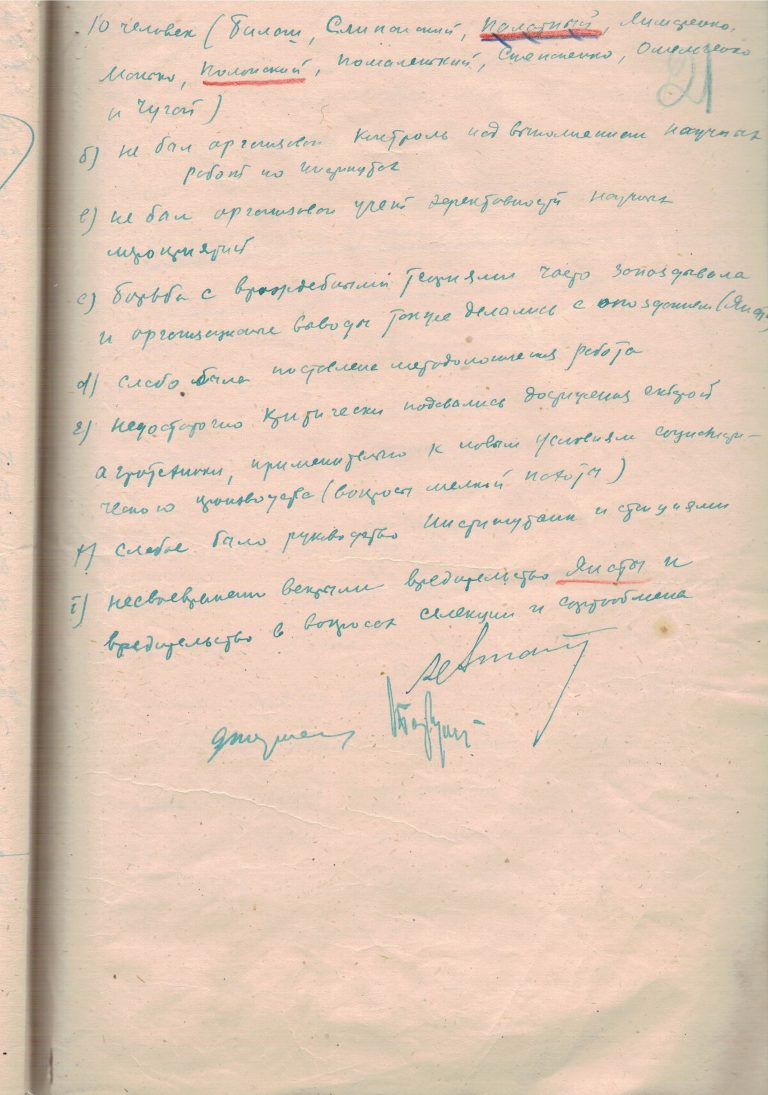 10 человек (Билаш, Слипанский, Палатный,
Полонский, Помаленький, Степаненко, Омельченко
и Чугай)
21
б) не был организован контроль над выполнением научных
работ по
в) не был организован учет эфективности научных
мероприятий
с) борьба с враждебными тециями часто запоздывала
и организационые выводы также делались с опозданием
d) слабо была поставлена методологическая работа
недостаточно критически подавались достижения
агротехники, применительно к новым условиям социалисти-
ческого производства (вопросы мелкой пахоты)
f) слабое было руководство институтами и станциями
i) несвоевременно вскрыли вредительство Янсты и
вредительство в вопросах селекции и сортообмена